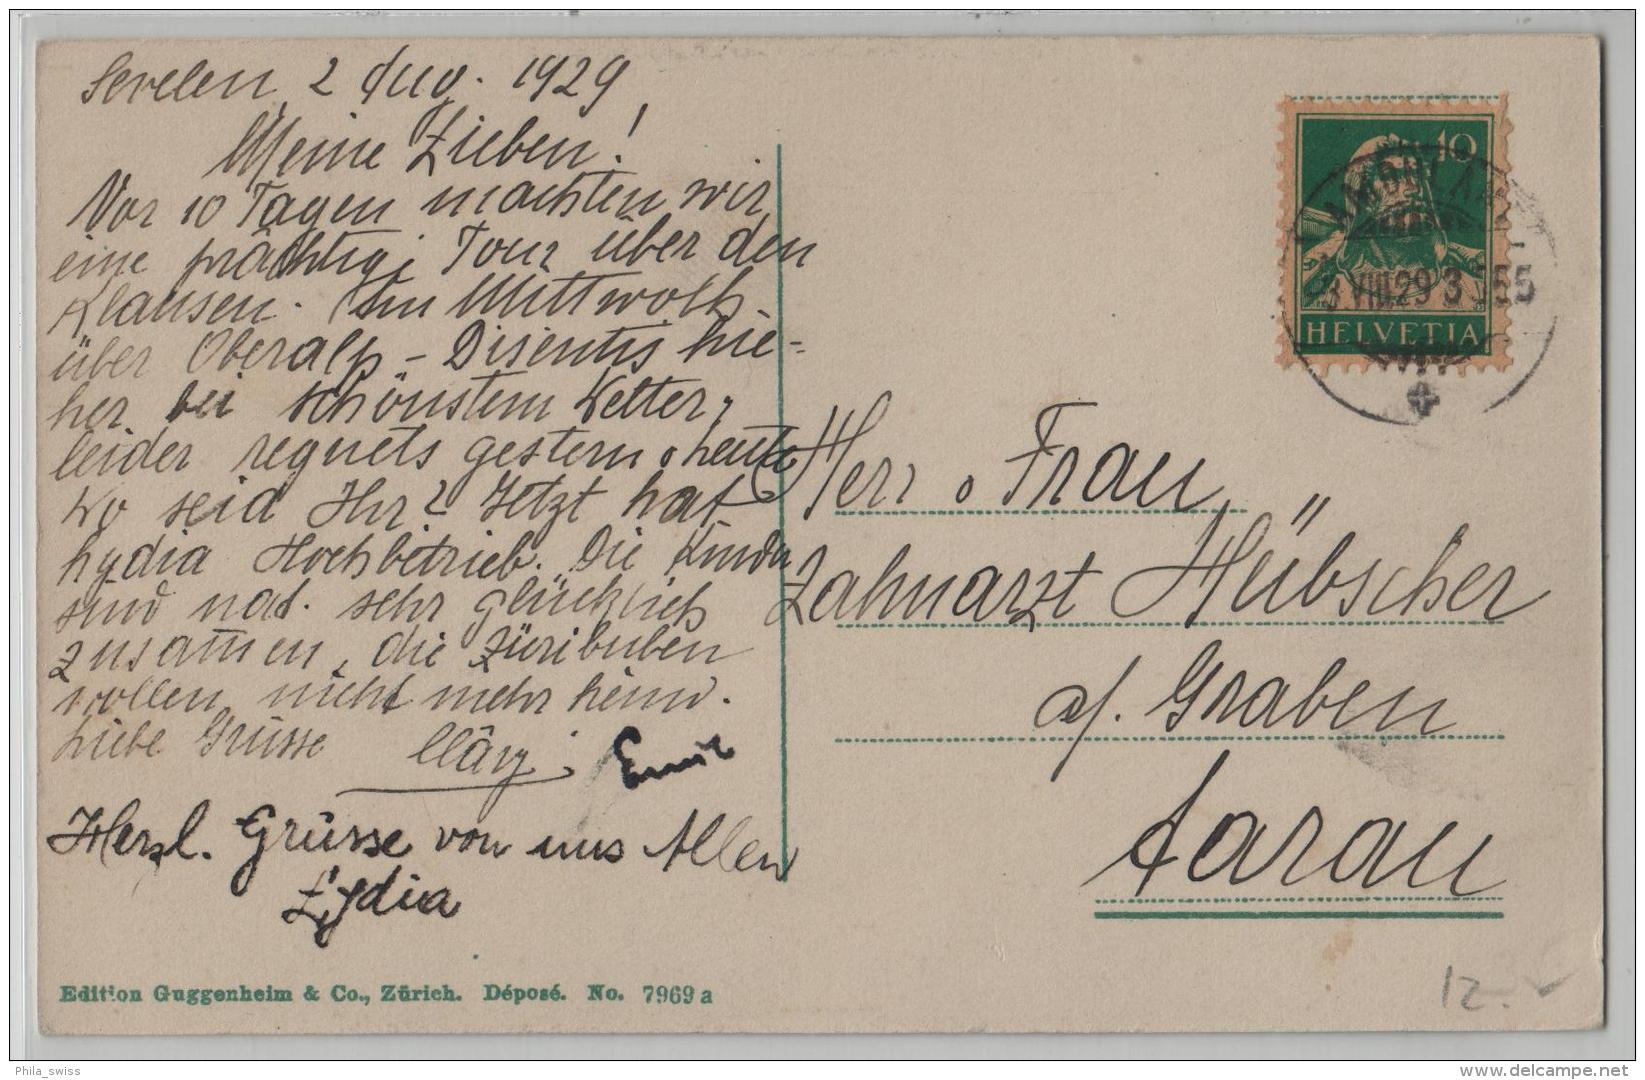 Sevelen 2 Aug. 1929
Meine Lieben!
Vor 10 Tagen machten wir
eine prächtige Tour über den
Klausen. Am Mittwoch
über Oberalp - Disentis hie-
her bei schönstem Wetter,
leider regnets gestern u heute
Wo seid Ihr? Jetzt hat
Lydia Hochbetrieb. Die Kinder
sind nat. sehr glücklich
zusammen, die Züribuben
wollen nicht mehr heim.
Liebe Grüsse Cläry Emil
Herzl. Grüsse von uns Allen
Lydia
Edition Guggenheim & Co., Zürich. Déposé. No. 7969 a
10
VIII.29 3
HELVETIA
Herr u Frau
Zahnarzt Hübscher
a/. Graben
Aarau
12.-
Phila_swiss
www.delcampe.net